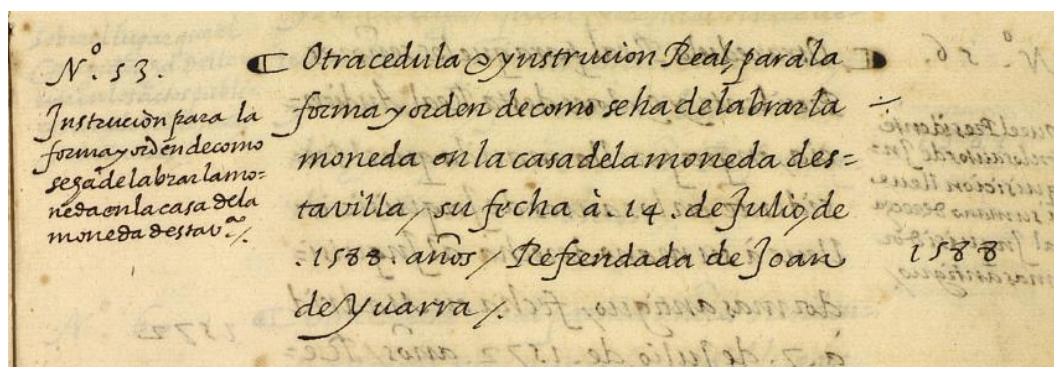 Nº. 53.
Instrucion para la
forma y orden de como
se ha de labrar la mo=
neda en la casa de la
moneda desta vª. /.
Otra cedula e ynstrucion Real, para la
forma y orden de como se ha de labrar la
moneda en la casa de la moneda des=
ta villa / su fecha à. 14. de Julio, de
.1588 años / Refrendada de Joan
de Yuarra /.
1588